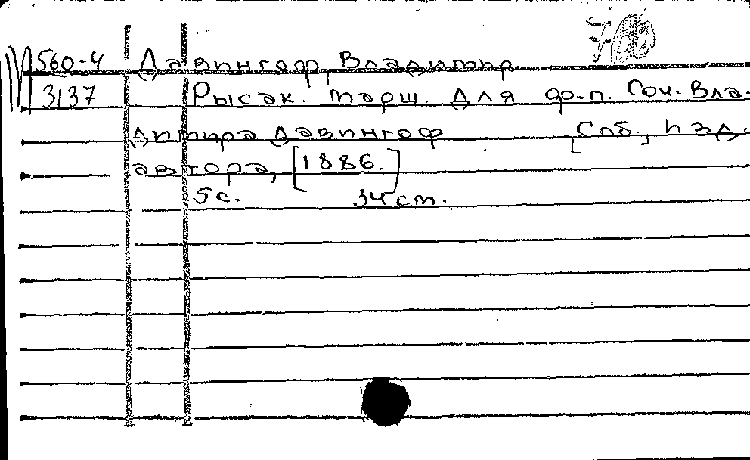 560-4 Давингоф, Владимир
3137 Рысак. Марш. Для ф.-п. Соч. Вла-
димира Давингоф [Спб., изд.
автора, [1886.]
5 с. 34 см.